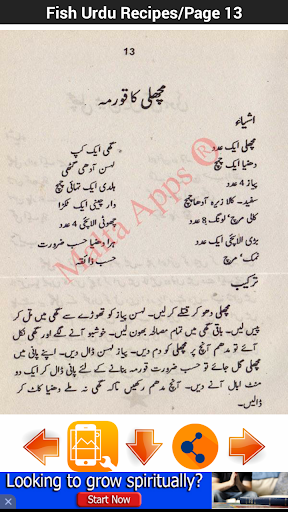 Fish Urdu Recipes/Page 13
13
مچھلی کا قورمہ
اشیاء
مچھلی ایک عدد
گھی ایک کپ
دھنیا ایک چمچ
لہسن آدھی گٹھی
پیاز 4 عدد
ہلدی ایک تہائی چمچ
سفید۔ کالا زیرہ آدھا چمچ
دار چینی ایک ٹکڑا
کالی مرچ' لونگ 8 عدد
چھوٹی الائچی 4 عدد
بڑی الائچی ایک عدد
ہرا دھنیا حسب ضرورت
نمک' مرچ
حسب ذائقہ
Malra Apps ®
ترکیب
مچھلی دھو کر قتلے کر لیں۔ لہسن پیاز کو تھوڑے سے گھی میں تل کر
پیس لیں۔ باقی گھی میں تمام مصالحہ بھون لیں۔ خوشبو آنے لگے اور گھی نکل
آئے تو مدھم آنچ پر مچھلی کو دم دیں۔ پیاز لسن ڈال دیں۔ اپنے پانی میں
مچھلی گل جائے تو حسب ضرورت قورمہ بنانے کے لئے پانی ڈال کر ایک دو
منٹ ابال آنے دیں۔ آنچ مدھم رکھیں تاکہ گھی نہ جلے دھنیا کاٹ کر
ڈالیں۔
Looking to grow spiritually?
Start Now